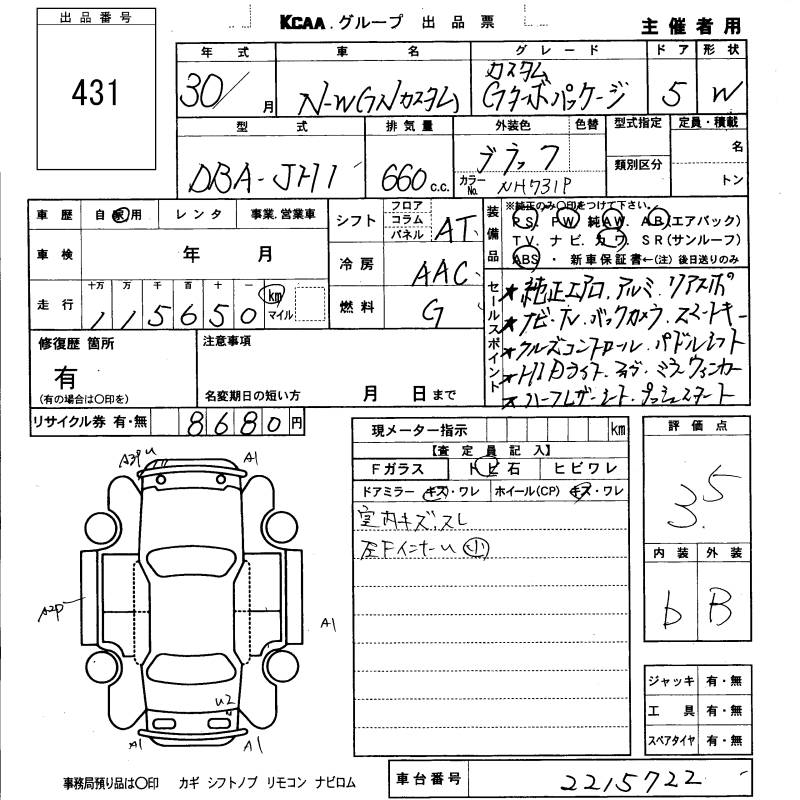 KCAA.グループ 出品票
主催者用
出品番号
431
年式 車名 グレード ドア 形状
30/ 月 N-WGNカスタム カスタム Gターボパッケージ 5 W
型式 排気量 外装色 色替 型式指定 定員・積載
DBA-JH1 660 c.c. ブラック カラーNo. NH731P 類別区分 名 トン
車歴 自家用 レンタ 事業.営業車
車検 年 月
走行 十万 万 千 百 十 一
115650 km マイル
シフト フロア コラム パネル AT
冷房 AAC
燃料 G
装備品 ※純正のみ〇印をつけて下さい。
PS. PW 純AW. AB(エアバック)
TV. ナビ. カワ. SR(サンルーフ)
ABS ・ 新車保証書←(注) 後日送りのみ
セールスポイント
★純正エアロ.アルミ.リアスポ
★ナビ・TV.バックカメラ.スマートキー
★クルーズコントロール.パドルシフト
★HIDライト.フォグ.ミラーウィンカー
★ハーフレザーシート.プッシュスタート
修復歴 箇所
有
(有の場合は〇印を)
注意事項
名変期日の短い方 月 日まで
リサイクル券 有・無 8680円
現メーター指示 km
【査定員記入】
Fガラス トビ石 ヒビワレ
ドアミラー キズ・ワレ ホイール(CP) キズ・ワレ
室内キズ.スレ
左FインナーU 小
評価点
3.5
内装 外装
b B
ジャッキ 有・無
工具 有・無
スペアタイヤ 有・無
A39 U
A1
A2P
A1
U2
A1
A1
事務局預り品は〇印 カギ シフトノブ リモコン ナビロム
車台番号 2215722